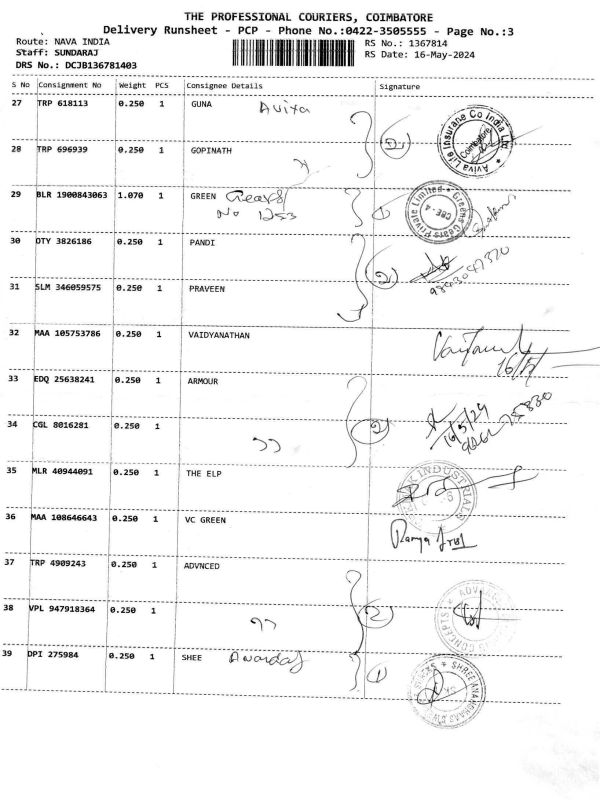 THE PROFESSIONAL COURIERS, COIMBATORE
Delivery Runsheet - PCP - Phone No.:0422-3505555 - Page No.:3
Route: NAVA INDIA
RS No.: 1367814
Staff: SUNDARAJ
RS Date: 16-May-2024
DRS No.: DCJB136781403
S No Consignment No Weight PCS Consignee Details Signature
27 TRP 618113 0.250 1 GUNA Aviva
28 TRP 696939 0.250 1 GOPINATH
Aviva Life Insurane Co India Ltd
Coimbatore
29 BLR 1900843063 1.070 1 GREEN Gears 1
No 1253
Greens Gears Private Limited
CBE-4
30 OTY 3826186 0.250 1 PANDI 2
9843047320
31 SLM 346059575 0.250 1 PRAVEEN
32 MAA 105753786 0.250 1 VAIDYANATHAN
16/5
33 EDQ 25638241 0.250 1 ARMOUR
34 CGL 8016281 0.250 1 " 2
16/5/24
35 MLR 40944091 0.250 1 THE ELP
INDUSTRIALS
36 MAA 108646643 0.250 1 VC GREEN
Ramya
37 TRP 4909243 0.250 1 ADVNCED
38 VPL 947918364 0.250 1 " 2
CONCEPTS
39 DPI 275984 0.250 1 SHEE Anandas 1